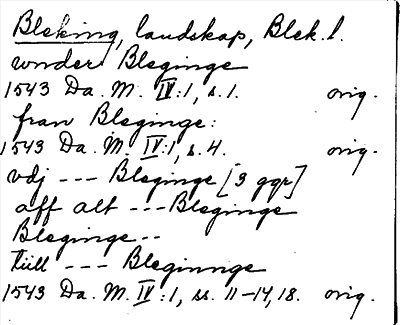 Bleking, landskap, Blek. l.
wnder Bleginge
1543 Da. M. IV:1, s. 1. orig.
fran Bleginge:
1543 Da. M. IV:1, s. 4. orig.
vdj --- Bleginge [3 ggr]
aff alt --- Bleginge
Bleginge --
tiill --- Bleginnge
1543 Da. M. IV:1, ss. 11-14, 18. orig.